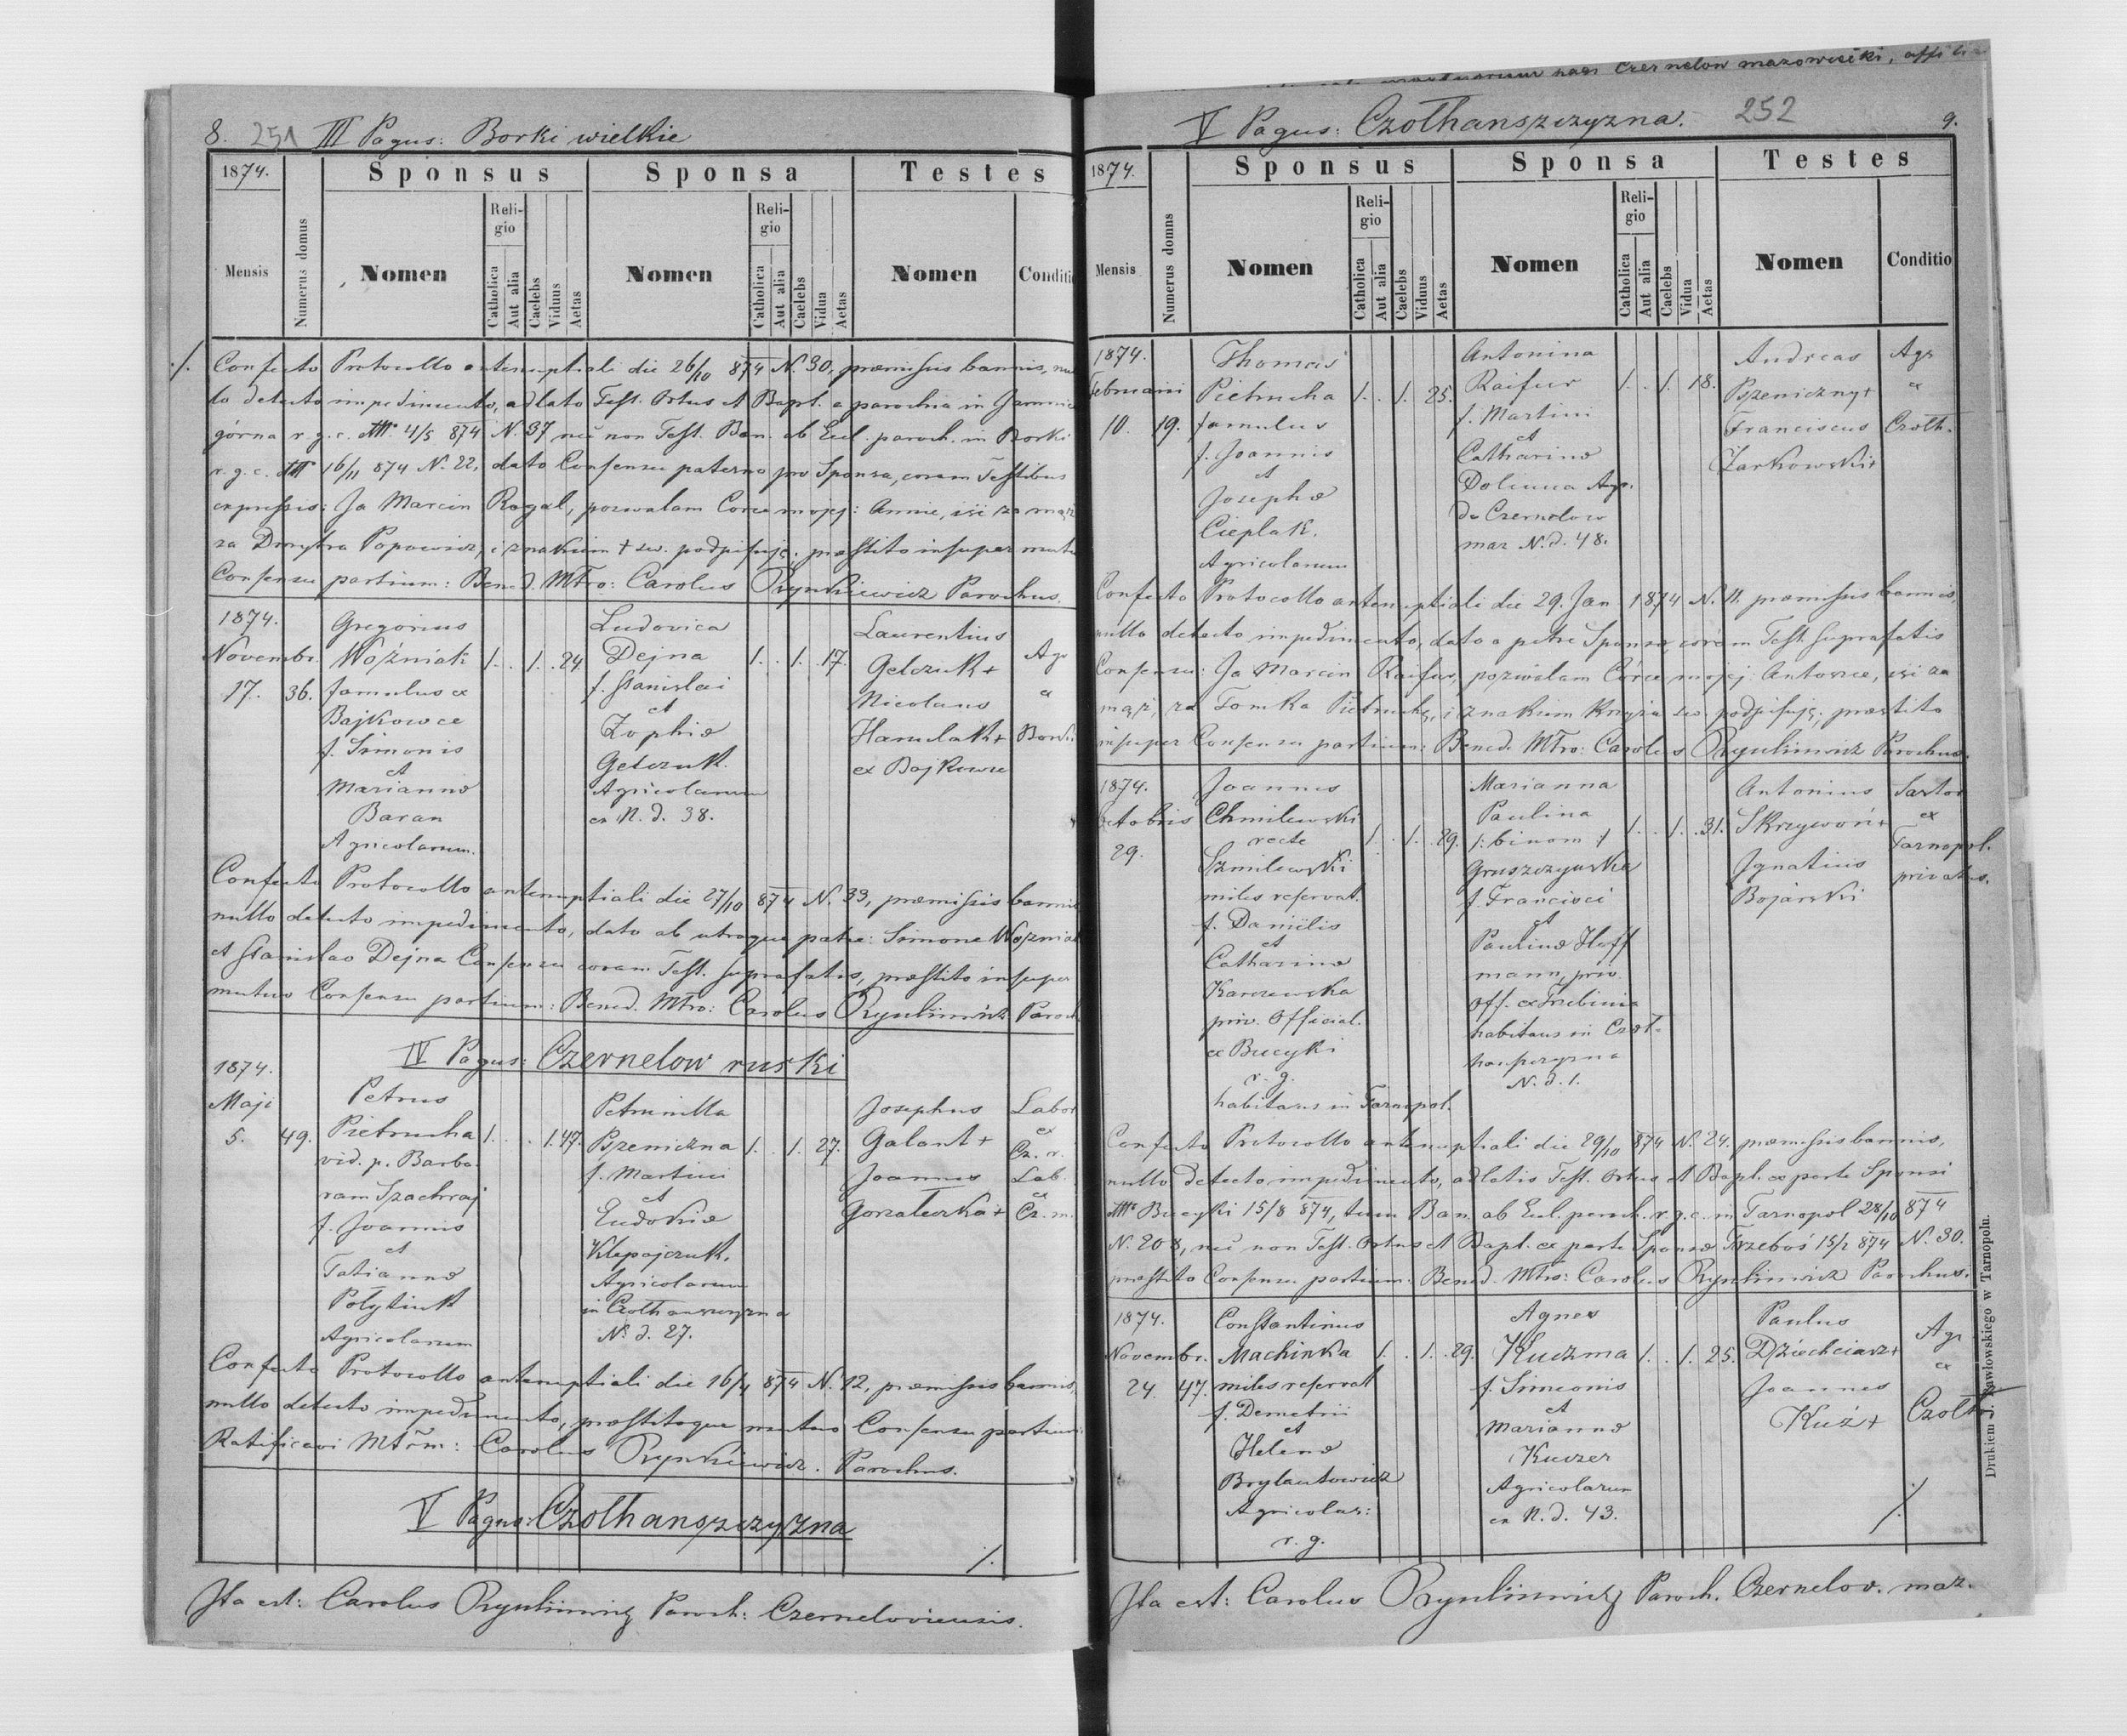 mazowiecki,
8. 251 III Pagus: Borki wielkie
1874.
Sponsus Sponsa Testes
Mensis
Numerus domus
Nomen
Religio
Catholica
Aut alia
Caelebs
Viduus
Aetas
Nomen
Religio
Catholica
Aut alia
Caelebs
Vidua
Aetas
Nomen
Conditi
Confecto Protocollo antenuptiali die 26/10 874 N. 30, præmissis bannis, nul
lo detecto impedimento, adlato Test. Ortus et Bapt. a parochia in
górna r. g. c. 4/5 874 N. 37 nec non Test. Ban. ab Eccl. paroch. in Borki
r. g. c. 16/11 874 N. 22, dato Consensu paterno pro Sponsa, coram Testibus
expressis: Ja Marcin Rogal, pozwalam Corce mojej: Annie, iść za mąż
za Dmytra Popowicz, i znakiem + św. podpisuję; præstito insuper mutuo
Consensu partium: Bened. Mtro: Carolus Rynkiewicz Parochus.
1874.
Novembr.
17. 36.
Gregorius
Woźniak 1. . 1. . 24
famulus ex
Bajkowce
f. Simonis
et
Mariannæ
Baran
Agricolarum.
Ludovica
Dejna 1. . 1. . 17.
f. Stanislai
et
Zophiæ
Gelczuk.
Agricolarum
ex N. d. 38.
Laurentius
Gelczuk +
Nicolaus
Hanulak +
ex Bajkowce
Agr
ex
Bork.
Confecto Protocollo antenuptiali die 27/10 874 N. 33, præmissis bannis
nullo detecto impedimento, dato ab utroque patre: Simone Woźniak
et Stanislao Dejna Consensu coram Test. suprafatis, præstito insuper
mutuo Consensu partium: Bened. Mtro: Carolus Rynkiewicz Paroch
IV Pagus: Czernelow ruski
1874.
Maji
5. 49.
Petrus
Pietrucha 1. . . 1. 47.
vid. p. Barba-
ram Szachraj
f. Joannis
et
Tatiannæ
Polytiuk
Agricolarum
Petrunilla
Pszeniczna 1. . 1. 27.
f. Martini
et
Eudokiæ
Klepajczuk.
Agricolarum
in Czołhanszczyzna
N. d. 27.
Josephus
Galant +
Joannes
Gorzaleczka +
Labor
ex
Cz. r.
Lab.
ex
Cz. m.
Confecto Protocollo antenuptiali die 16/4 874 N. 12, præmissis bannis,
nullo detecto impedimento, præstitoque mutuo Consensu partium
Ratificavi Mtrm: Carolus Rynkiewicz. Parochus.
V Pagus: Czołhanszczyzna
./.
Ita est: Carolus Rynkiewicz Paroch: Czerneloviensis.
V Pagus: Czołhanszczyzna. 252 9.
1874.
Sponsus Sponsa Testes
Mensis
Numerus domus
Nomen
Religio
Catholica
Aut alia
Caelebs
Viduus
Aetas
Nomen
Religio
Catholica
Aut alia
Caelebs
Vidua
Aetas
Nomen
Conditio
1874.
Februarii
10. 19.
Thomas
Pietrucha 1. . 1. 25.
famulus
f. Joannis
et
Josephæ
Cieplak.
Agricolarum
Antonina
Raifur 1. . 1. 18.
f. Martini
et
Catharinæ
Dolinna Agr.
de Czernelow
maz N. d. 48.
Andreas
Pszeniczny +
Franciscus
Żarkowski +
Agr
ex
Czołh.
Confecto Protocollo antenuptiali die 29. Jan 1874 N. 11. præmissis bannis,
nullo detecto impedimento, dato a patre Sponsæ coram Test. suprafatis
Consensu: Ja Marcin Raifur, pozwalam Córce mojej Antosce, iść za
mąż, za Tomka Pietruchę, i znakiem Krzyża św. podpisuję; præstito
insuper Consensu partium: Bened. Mtro: Carolus Rynkiewicz Parochus.
1874.
Octobris
29.
Joannes
Chmilewski
recte 1. . 1. . 29.
Szmilewski
miles reservat.
f. Daniilis
et
Catharinæ
Karczewska
priv. Official.
ex Bucyki
r. g.
habitans in Tarnopol.
Marianna
Paulina
/: binom :/ 1. . 1. . 31.
Gruszczyńska
f. Francisci
et
Paulinæ Hoff
mann, priv.
off. ex Trebinia
habitans in Czoł-
hanszczyzna
N. d. 1.
Antonius
Skrzywoń +
Ignatius
Bojarski
Sartor
ex
Tarnopol.
privatus.
Confecto Protocollo antenuptiali die 29/10 874 N. 24. præmissis bannis,
nullo detecto impedimento, adlatis Test. Ortus et Bapt. ex parte Sponsi
Bucyki 15/8 874, tum Ban. ab Eccl. paroch. r. g. c. in Tarnopol 28/10 874
N. 208, nec non Test. Ortus et Bapt. ex parte Sponsæ Trzeboś 15/2 874 N. 30.
præstito Consensu partium: Bened. Mtro: Carolus Rynkiewicz Parochus.
1874.
Novembr.
24. 47.
Constantinus
Machinka 1. . 1. . 29.
miles reservat
f. Demetrii
et
Helenæ
Brylantowicz
Agricolar:
r. g.
Agnes
Kuczma 1. . 1. 25.
f. Simeonis
et
Mariannæ
Kuczer
Agricolarum
ex N. d. 43.
Paulus
Dziechciarz +
Joannes
Kuź +
Agr
ex
Czołh
./.
Ita est: Carolus Rynkiewicz Paroch. Czernelov. maz.
Drukiem J. Pawłowskiego w Tarnopolu.